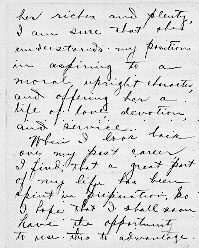 her riches and plenty,
I am sure that she
understands my position
in aspiring to a
moral upright character
and offering her a
life of love, devotion,
and service.
When I look back
over my past career
I find that a great part
of my life has been
spent in preparation, so
I hope that I shall soon
have the opportunity
to use this to advantage.